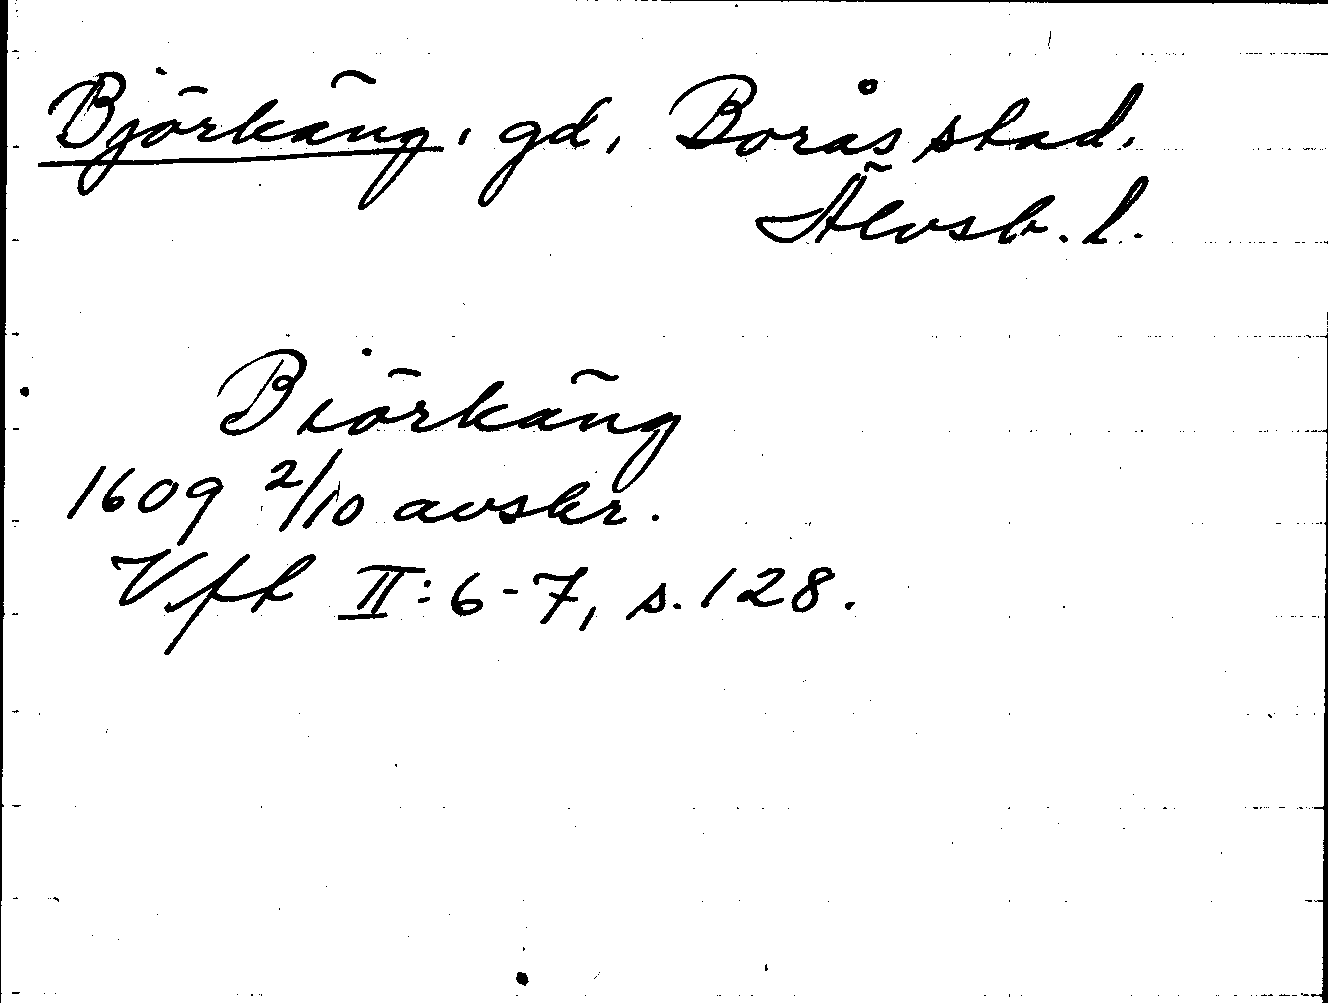 Björkäng, gd, Borås stad.
Älvsb. l.
Biörkäng
1609 2/10 avskr.
Vfk II:6-7, s. 128.